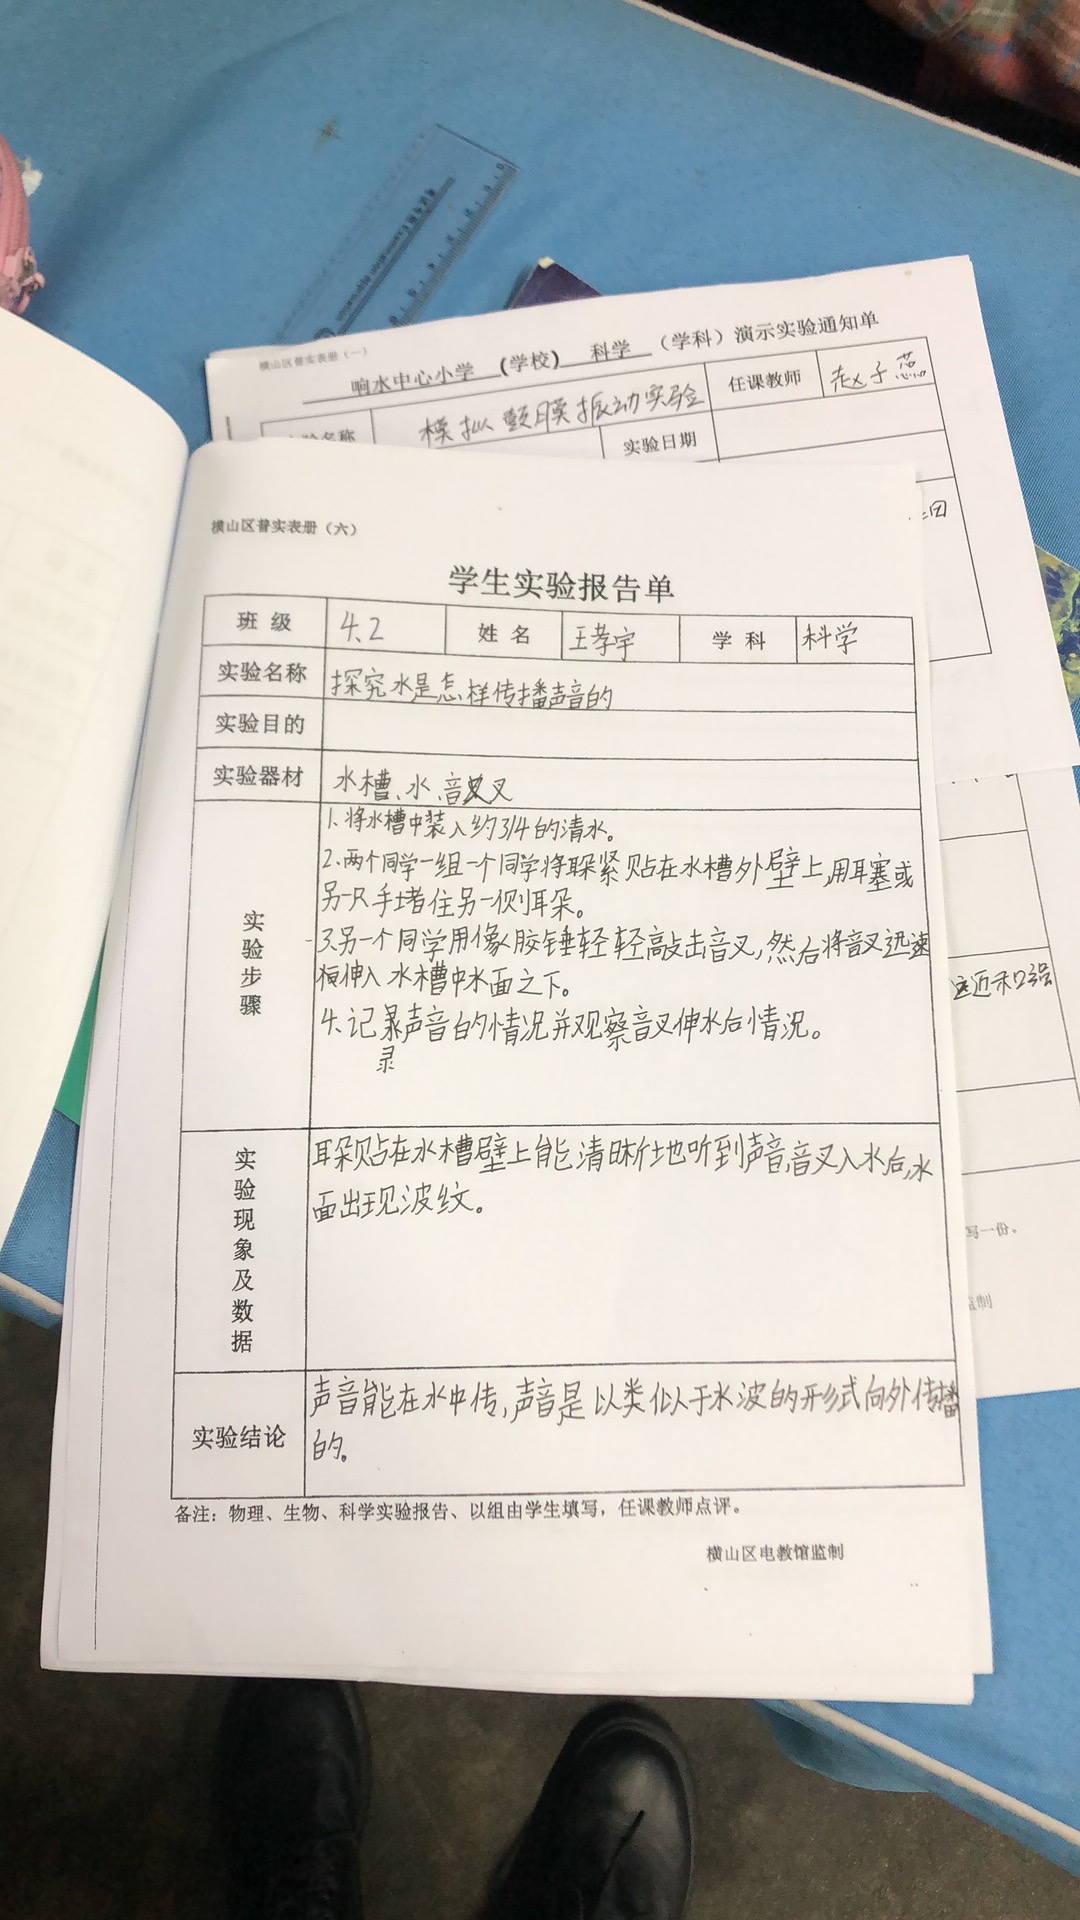 横山区普实表册（一）
响水中心小学 (学校) 科学 （学科）演示实验通知单
实验名称 模拟鼓膜振动实验 任课教师
实验日期
横山区普实表册（六）
学生实验报告单
班 级 4.2 姓 名 王孝宇 学 科 科学
实验名称 探究水是怎样传播声音的
实验目的
实验器材 水槽、水、音叉
实验步骤
1、将水槽中装入约3/4的清水。
2、两个同学一组一个同学将耳朵紧贴在水槽外壁上,用耳塞或
另一只手堵住另一侧耳朵。
3.另一个同学用像胶锤轻轻敲击音叉,然后将音叉迅速
伸入水槽中水面之下。
4、记录声音的情况并观察音叉伸水后情况。
录
实验现象及数据
耳朵贴在水槽壁上能清晰地听到声音,音叉入水后,水
面出现波纹。
实验结论
声音能在水中传,声音是以类似于水波的形式向外传播
的。
备注：物理、生物、科学实验报告、以组由学生填写，任课教师点评。
横山区电教馆监制
远近和强
写一份。
监制